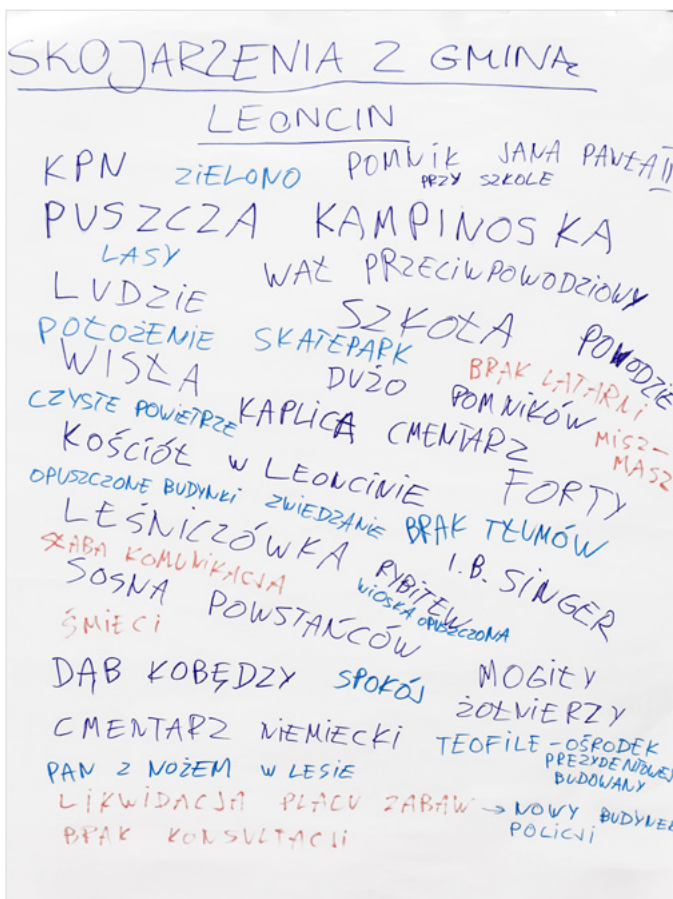 SKOJARZENIA Z GMINĄ
LEONCIN
KPN ZIELONO POMNIK JANA PAWŁA II
PRZY SZKOLE
PUSZCZA KAMPINOSKA
LASY WAŁ PRZECIWPOWODZIOWY
LUDZIE SZKOŁA POWODZIE
POŁOŻENIE SKATEPARK BRAK LATARNI
WISŁA DUŻO POMNIKÓW MISZ-
MASZ
CZYSTE POWIETRZE KAPLICA CMENTARZ
KOŚCIÓŁ W LEONCINIE FORTY
OPUSZCZONE BUDYNKI ZWIEDZANIE BRAK TŁUMÓW
LEŚNICZÓWKA I.B. SINGER
SŁABA KOMUNIKACJA RYBITEW
WIOSKA OPUSZCZONA
SOSNA POWSTAŃCÓW
ŚMIECI
DĄB KOBĘDZY SPOKÓJ MOGIŁY
ŻOŁNIERZY
CMENTARZ NIEMIECKI TEOFILE - OŚRODEK
PREZYDENTOWEJ
BUDOWANY
PAN Z NOŻEM W LESIE
LIKWIDACJA PLACU ZABAW → NOWY BUDYNEK
POLICJI
BRAK KONSULTACJI